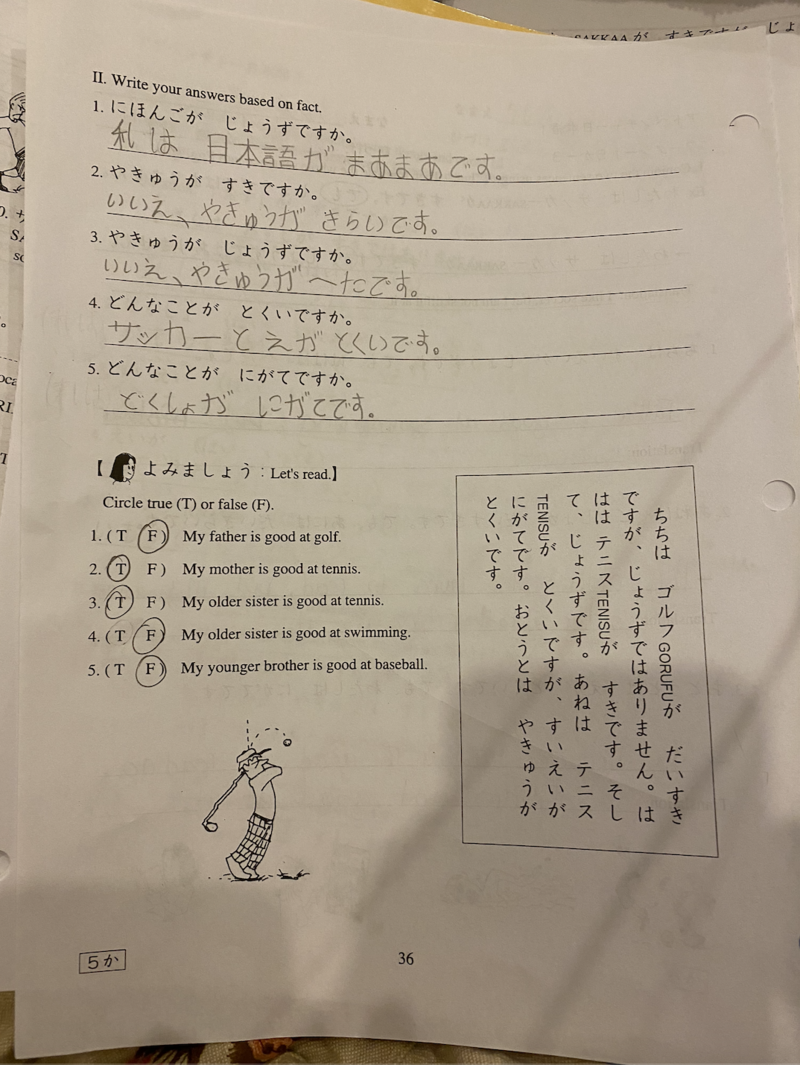 SAKKAAが すきですが じょ
II. Write your answers based on fact.
1. にほんごが じょうずですか。
私は 日本語が まあまあです。
2. やきゅうが すきですか。
いいえ、やきゅうが きらいです。
3. やきゅうが じょうずですか。
いいえ、やきゅうが へたです。
4. どんなことが とくいですか。
サッカーと えが とくいです。
5. どんなことが にがてですか。
どくしょが にがてです。
【 よみましょう : Let's read.】
Circle true (T) or false (F).
1. ( T F ) My father is good at golf.
2. ( T F ) My mother is good at tennis.
3. ( T F ) My older sister is good at tennis.
4. ( T F ) My older sister is good at swimming.
5. ( T F ) My younger brother is good at baseball.
ちちは ゴルフGORUFUが だいすき
ですが、じょうずではありません。は
はは テニスTENISUが すきです。そし
て、じょうずです。あねは テニス
TENISUが とくいですが、すいえいが
にがてです。おとうとは やきゅうが
とくいです。
5か
36